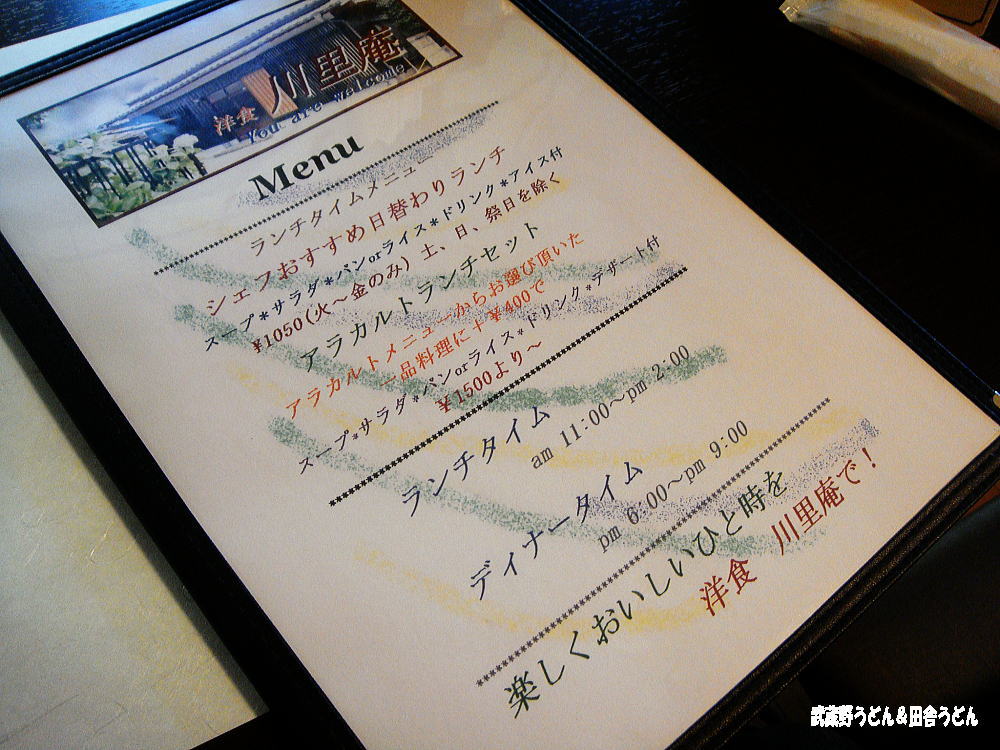 洋食 川里庵
You are welcome
Menu
ランチタイムメニュー
シェフおすすめ日替わりランチ
スープ*サラダ*パンorライス*ドリンク*アイス付
¥1050(火~金のみ) 土、日、祭日を除く
アラカルトランチセット
アラカルトメニューからお選び頂いた
一品料理に+¥400で
スープ*サラダ*パンorライス*ドリンク*デザート付
¥1500より~
ランチタイム
am 11:00~pm 2:00
ディナータイム
pm 6:00~pm 9:00
楽しくおいしいひと時を
洋食 川里庵で!
武蔵野うどん&田舎うどん